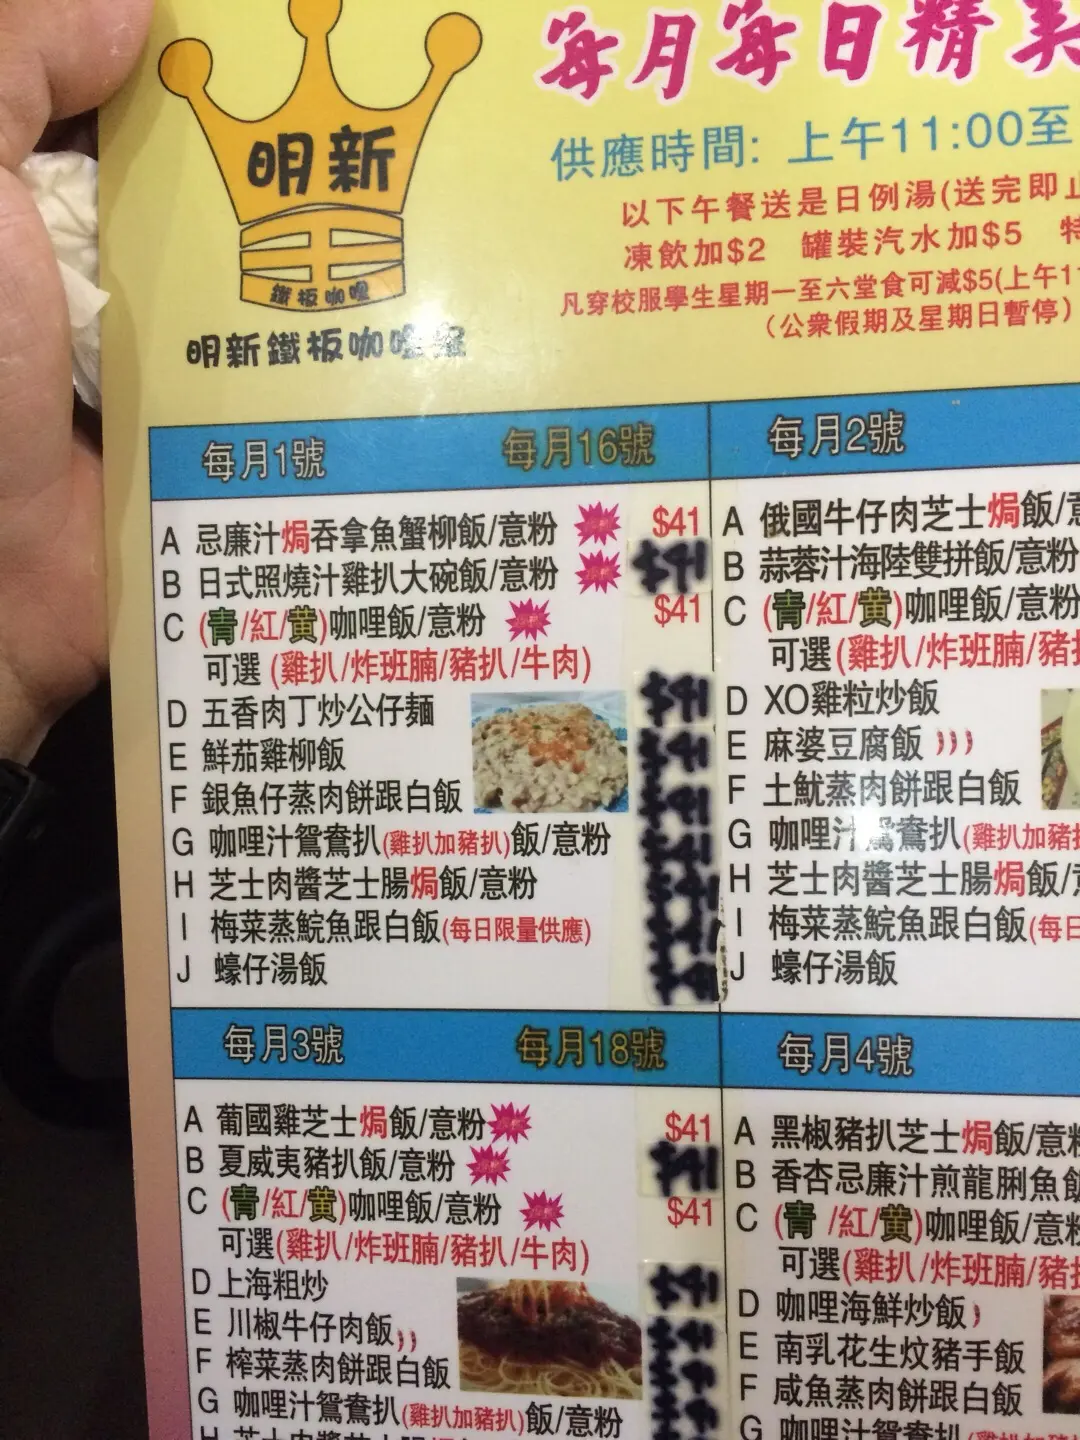 明新
鐵板咖喱
明新鐵板咖喱
每月每日精
供應時間: 上午11:00至
以下午餐送是日例湯(送完即止
凍飲加$2 罐裝汽水加$5 特
凡穿校服學生星期一至六堂食可減$5(上午11
(公眾假期及星期日暫停)
每月1號 每月16號
A 忌廉汁焗吞拿魚蟹柳飯/意粉 $41
B 日式照燒汁雞扒大碗飯/意粉 $41
C (青/紅/黄)咖哩飯/意粉 $41
可選 (雞扒/炸班腩/豬扒/牛肉)
D 五香肉丁炒公仔麵 $41
E 鮮茄雞柳飯 $41
F 銀魚仔蒸肉餅跟白飯 $41
G 咖哩汁鴛鴦扒(雞扒加豬扒)飯/意粉
H 芝士肉醬芝士腸焗飯/意粉
I 梅菜蒸鯇魚跟白飯(每日限量供應)
J 蠔仔湯飯
每月2號
A 俄國牛仔肉芝士焗飯/意
B 蒜蓉汁海陸雙拼飯/意粉
C (青/紅/黄)咖哩飯/意粉
可選(雞扒/炸班腩/豬扒
D XO雞粒炒飯
E 麻婆豆腐飯
F 土魷蒸肉餅跟白飯
G 咖哩汁鴛鴦扒(雞扒加豬扒
H 芝士肉醬芝士腸焗飯/意
I 梅菜蒸鯇魚跟白飯(每日
J 蠔仔湯飯
每月3號 每月18號
A 葡國雞芝士焗飯/意粉 $41
B 夏威夷豬扒飯/意粉 $41
C (青/紅/黄)咖哩飯/意粉 $41
可選(雞扒/炸班腩/豬扒/牛肉)
D 上海粗炒 $41
E 川椒牛仔肉飯
F 榨菜蒸肉餅跟白飯
G 咖哩汁鴛鴦扒(雞扒加豬扒)飯/意粉
H 芝士肉醬芝士腸
每月4號
A 黑椒豬扒芝士焗飯/意粉
B 香杏忌廉汁煎龍脷魚飯
C (青/紅/黄)咖哩飯/意粉
可選(雞扒/炸班腩/豬扒
D 咖哩海鮮炒飯
E 南乳花生炆豬手飯
F 咸魚蒸肉餅跟白飯
G 咖哩汁鴛鴦扒(雞扒加豬扒